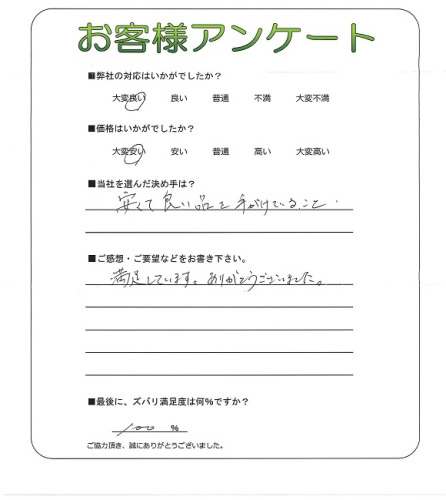 お客様アンケート
■弊社の対応はいかがでしたか？
大変良い 良い 普通 不満 大変不満
■価格はいかがでしたか？
大変安い 安い 普通 高い 大変高い
■当社を選んだ決め手は？
安くて良い品を手がけていること.
■ご感想・ご要望などをお書き下さい。
満足しています。ありがとうございました。
■最後に、ズバリ満足度は何%ですか？
100 %
ご協力頂き、誠にありがとうございました。